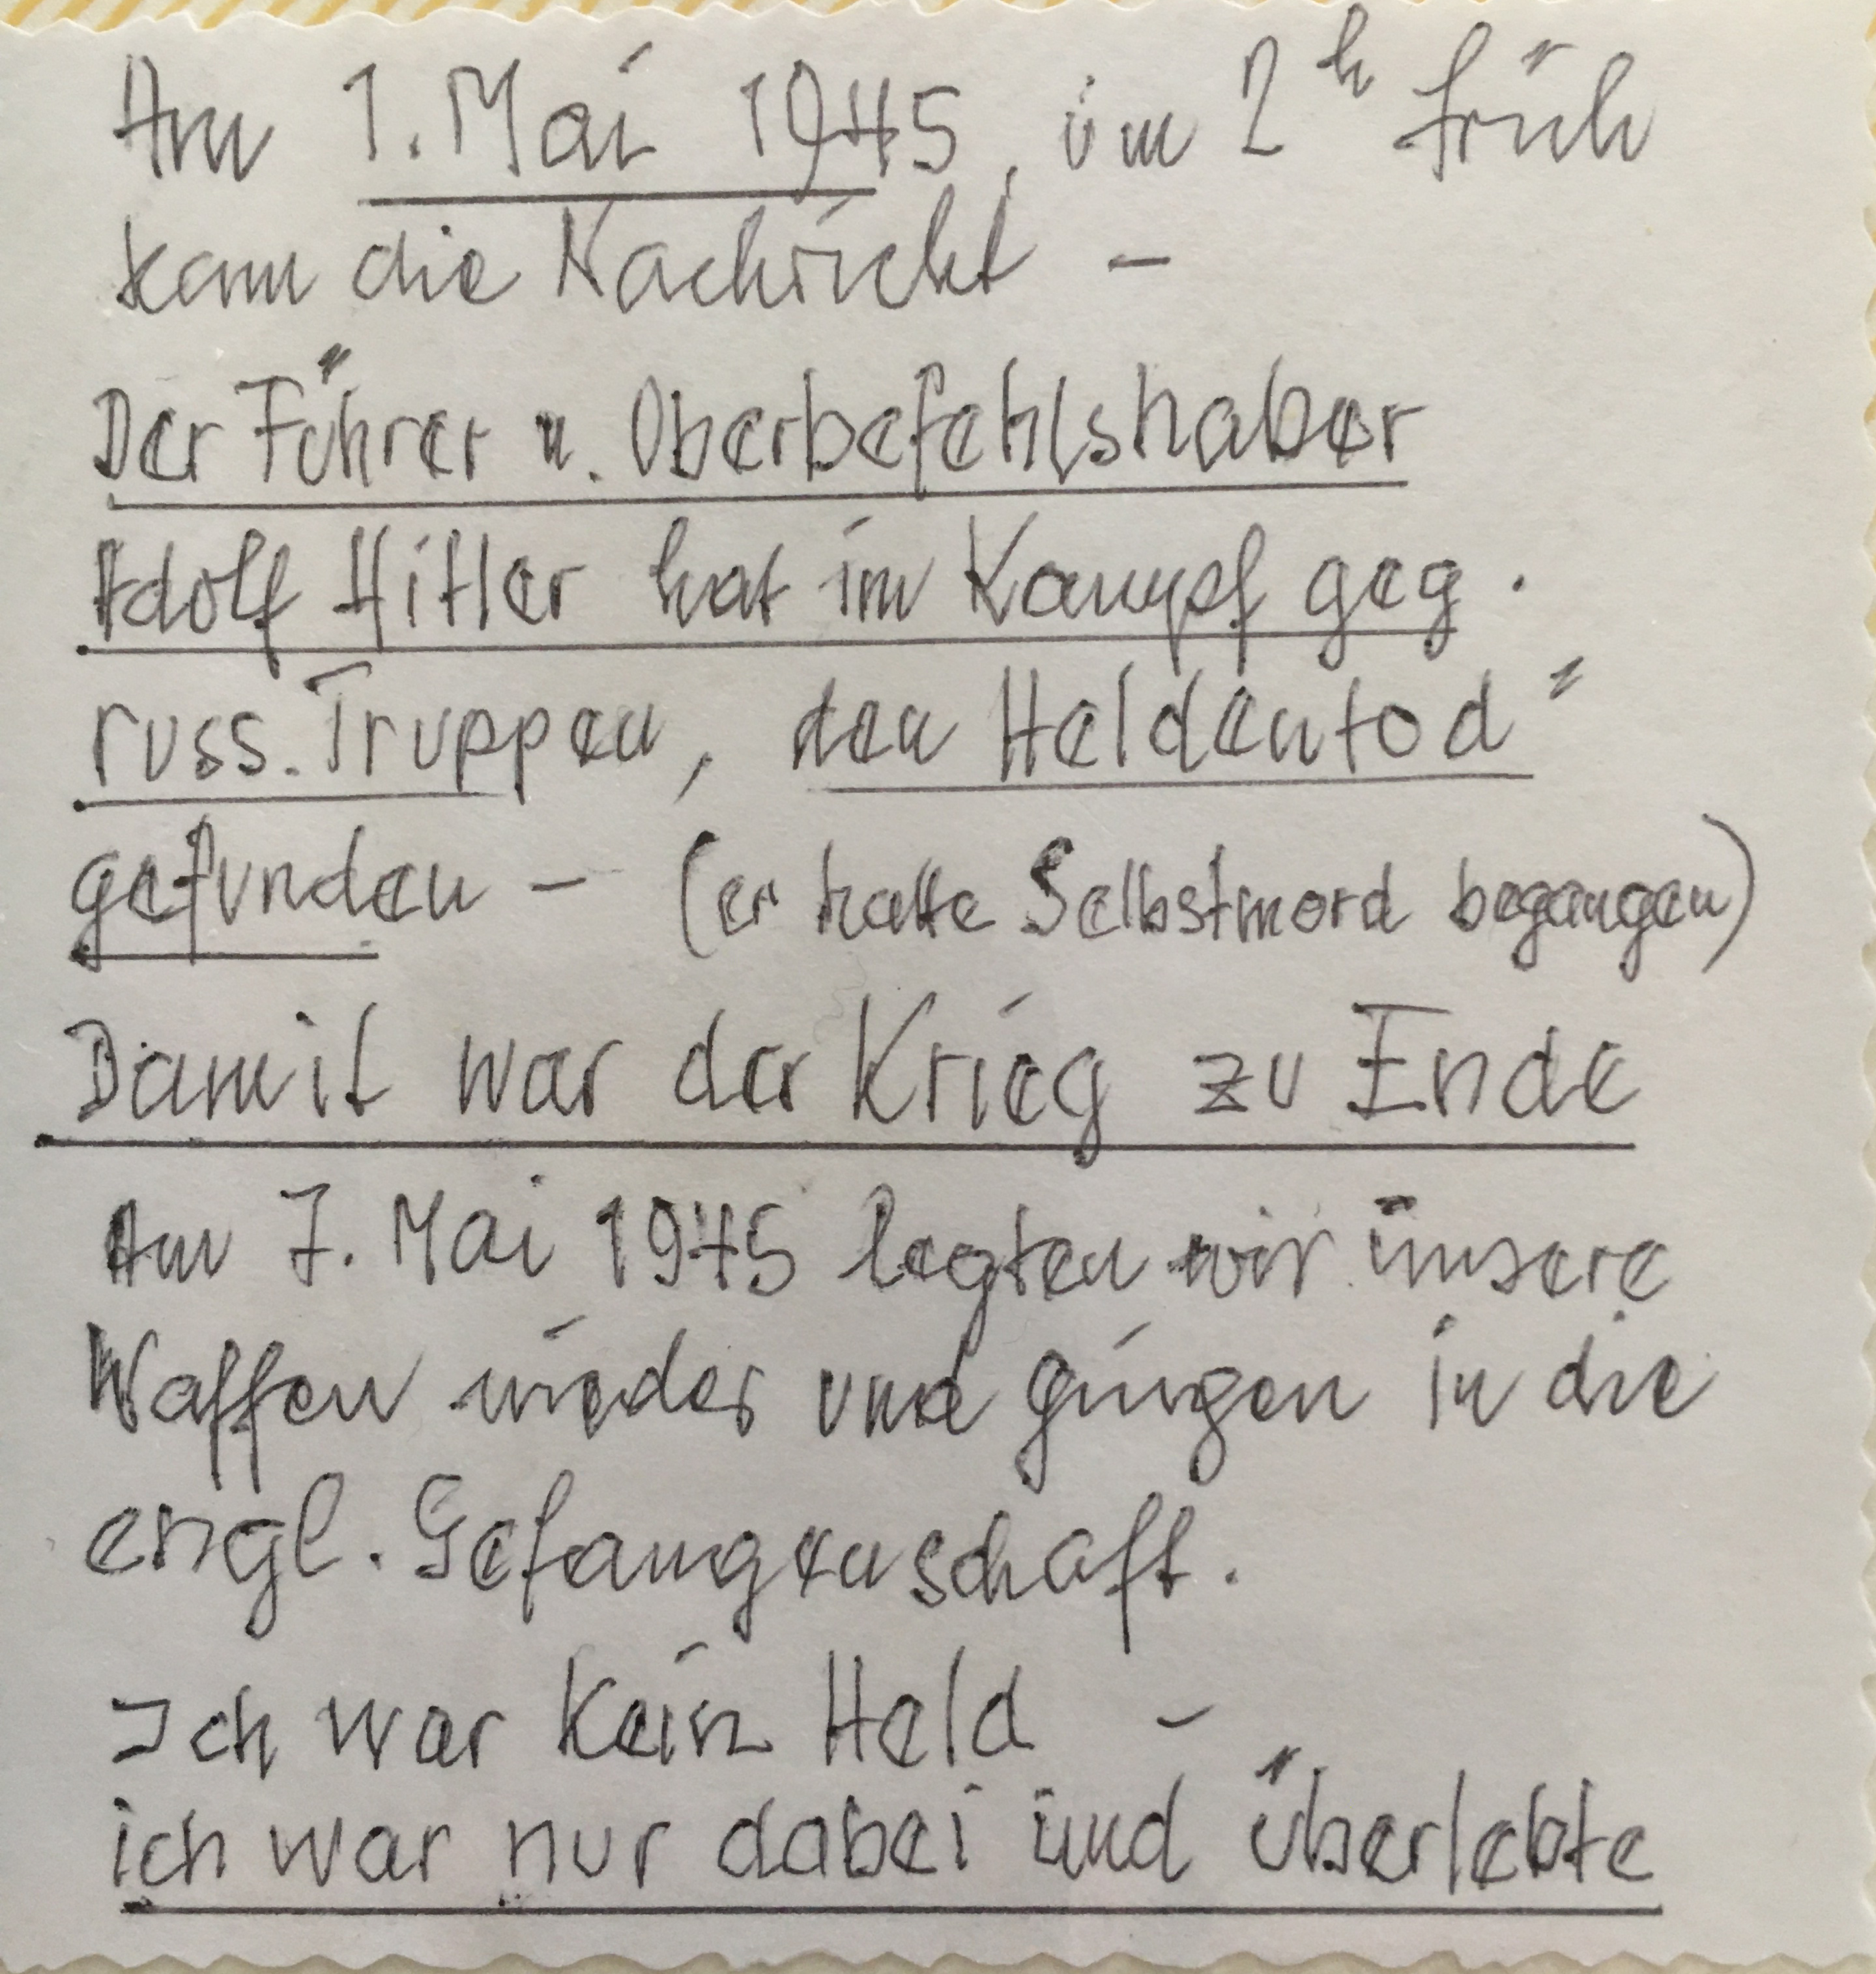 Am 1. Mai 1945, um 2h früh
kam die Nachricht –
Der Führer u. Oberbefehlshaber
Adolf Hitler hat im Kampf geg.
russ. Truppen, den Heldentod"
gefunden – (er hatte Selbstmord begangen)
Damit war der Krieg zu Ende
Am 7. Mai 1945 legten wir unsere
Waffen nieder und gingen in die
engl. Gefangenschaft.
Ich war kein Held –
ich war nur dabei und überlebte